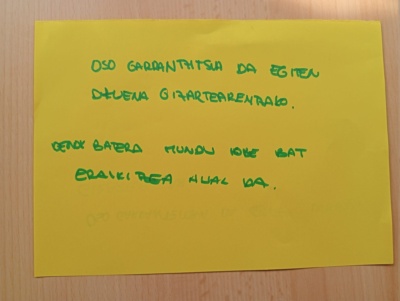 OSO GARRANTHITSUA DA EGITEN
DZUENA GIZARTEARENTZAKO.
DENOK BATERA MUNDU HOBE BAT
ERAIKITZEA AHAL DA.